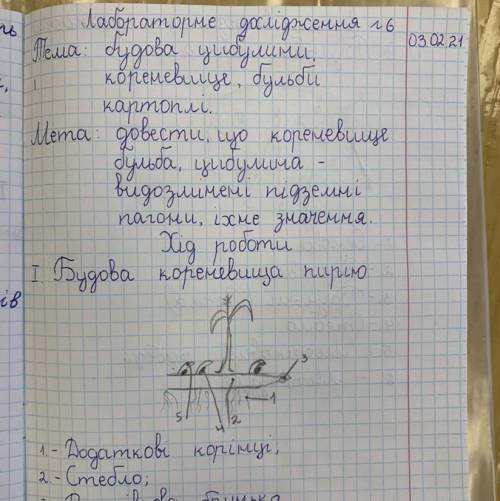 Лабораторне дослідження №6
03.02.21
Тема: будова цибулини,
кореневище, бульби
картоплі.
Мета: довести, що кореневище
бульба, цибулина -
видозлинені підземні
пагони, їхнє значення.
Хід роботи
I. Будова кореневища пирію
3
1
2
4
5
1.- Додаткові корінці;
2.- Стебло;
ів